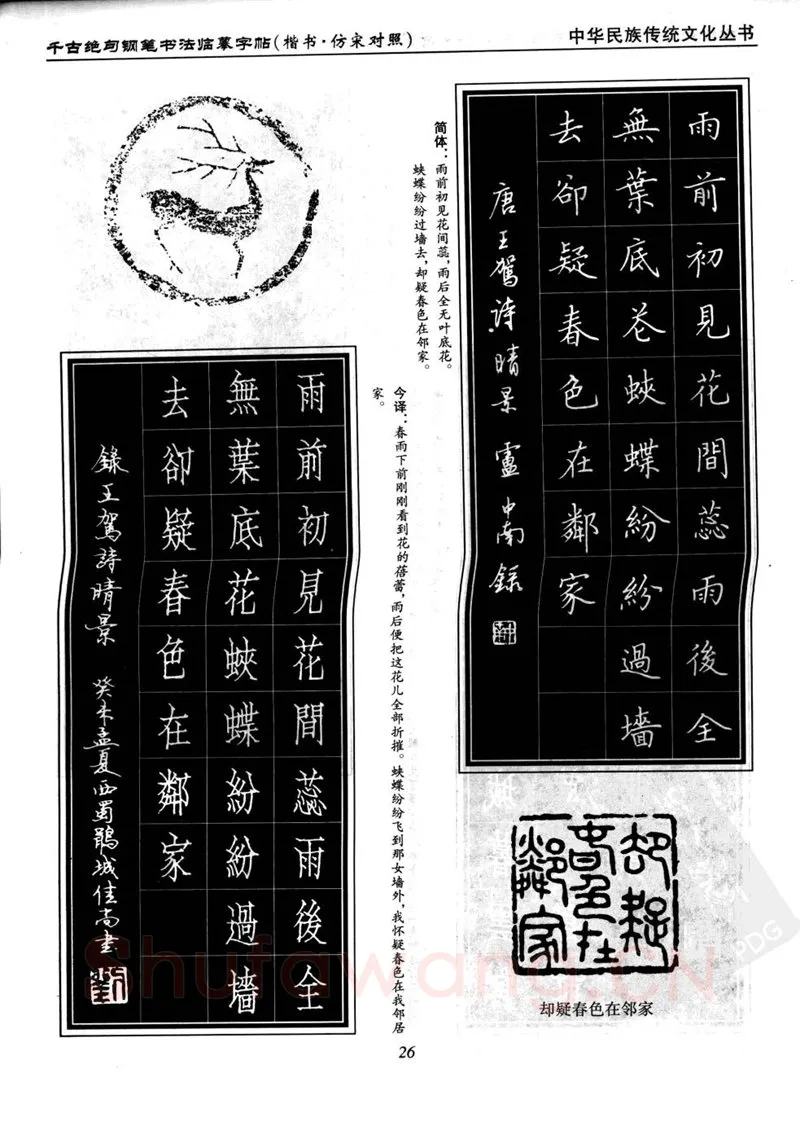 千古绝句钢笔书法临摹字帖(楷书·仿宋对照)
中华民族传统文化丛书
雨前初見花間蕊雨後全
無葉底花蛺蝶紛紛過墻
去卻疑春色在鄰家
唐王駕詩晴景盧中南錄
简体：雨前初见花间蕊，雨后全无叶底花。
蛱蝶纷纷过墙去，却疑春色在邻家。
今译：春雨下前刚刚看到花的蓓蕾，雨后便把这花儿全部折摧。蛱蝶纷纷飞到那女墙外，我怀疑春色在我邻居
家。
雨前初見花間蕊雨後全
無葉底花蛺蝶紛紛過墻
去卻疑春色在鄰家
錄王駕詩晴景 癸未孟夏西蜀鵑城佳尚書
劉
却疑春色在鄰家
却疑春色在邻家
26
Shufawang.CN
PDG